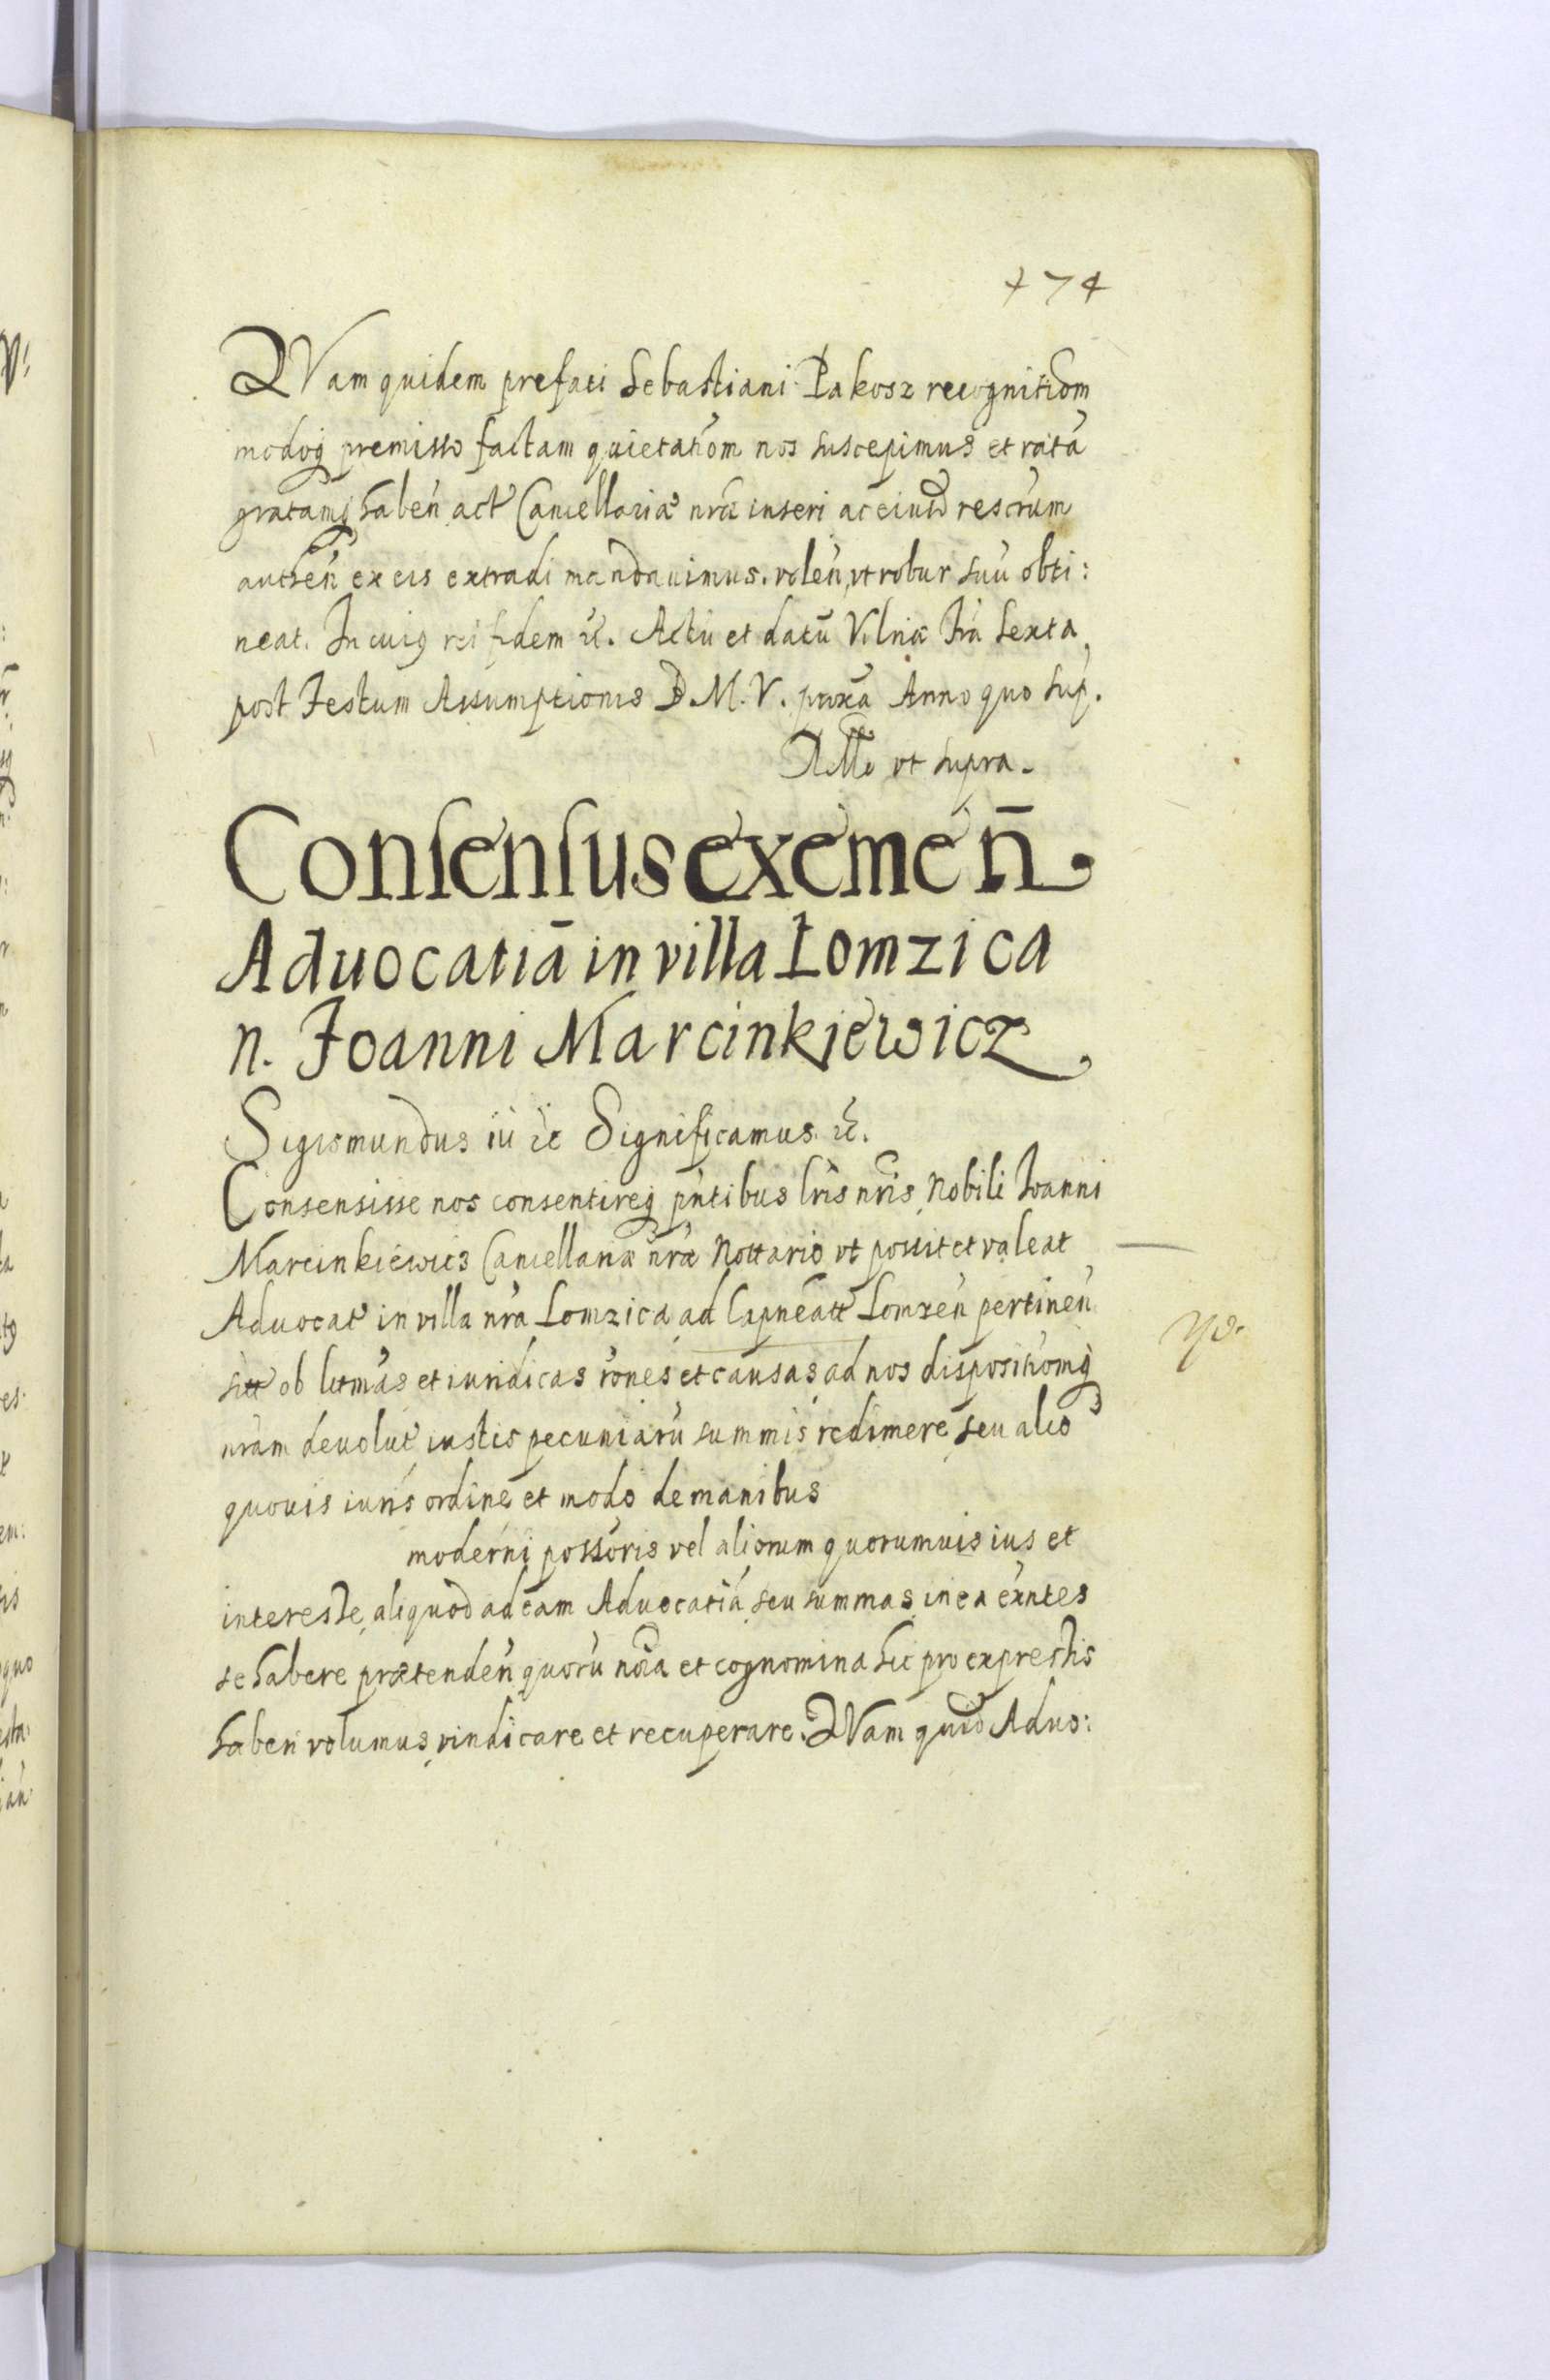 174
QVam quidem prefati Sebastiani Pakosz recognitiom
modoq premisso factam quietatiom nos suscepimus et ratā
gratamq haben̄ act Cancellariæ nrã inseri ac eiusd rescrum
authen̄ ex eis extradi mandauimus. volen̄, vt robur suū obti:
neat. In cuiq rei fidem &c. Actū et datū Vilnæ fria Sexta
post Festum Assumptionis B. M. V. proxa Anno quo sup.
vt supra.
Consensus exemen̄
Aduocatiā in villa Łomzica
n. Joanni Marcinkiewicz.
Sigismundus iii &c Significamus &c.
Consensisse nos consentireq pntibus lris nris, Nobili Ioanni
Marcinkiewics Cancellariæ nræ Nottario vt possit et valeat
Aduocat in villa nra Lomzica ad Capneatt Lomzen̄ pertinen̄
sitt ob letmas et iuridicas rones et causas ad nos dispositiomq
nram deuolut iustis pecuniarū summis redimere seu alio
quouis iuris ordine et modo de manibus
moderni possoris vel aliorum quorumuis ius et
interesse aliquod ad eam Aduocatiā seu summas in ea exntes
se habere prætenden̄ quorū noia et cognomina hic pro expressis
haberi volumus, vindicare et recuperare. QVam quid Aduo: